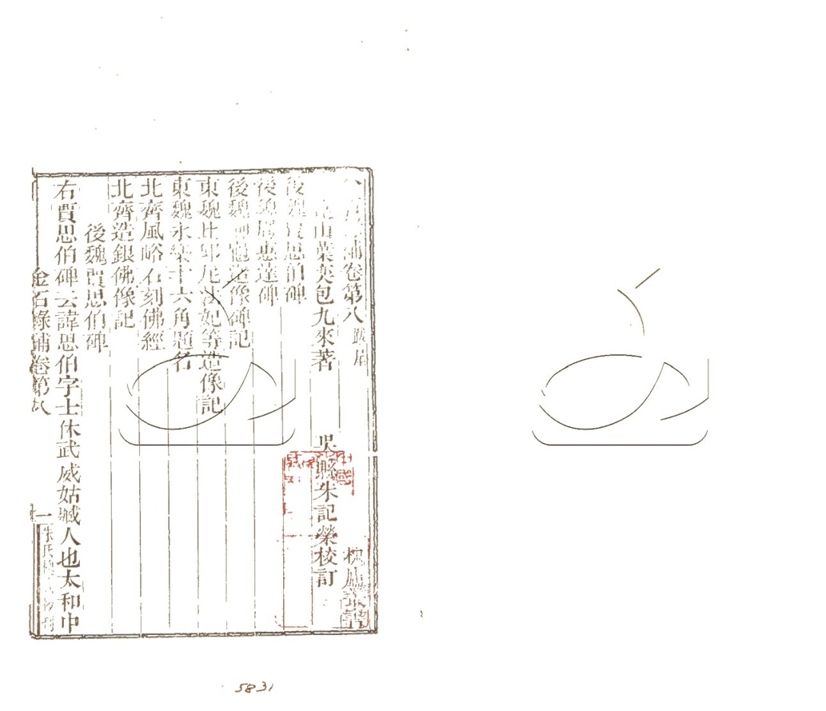 金石錄補卷第八 跋尾 槐廬叢書
崑山葉奕包九來著 吳縣朱記榮校訂
後魏賈思伯碑
後魏 惠達碑
後魏 造像碑記
東魏比邱尼 妃等造像記
東魏永樂十六角題名
北齊風峪石刻佛經
北齊造銀佛像記
後魏賈思伯碑
右賈思伯碑云諱思伯字士休武威姑臧人也太和中
金石錄補卷第八 一 朱氏
5831